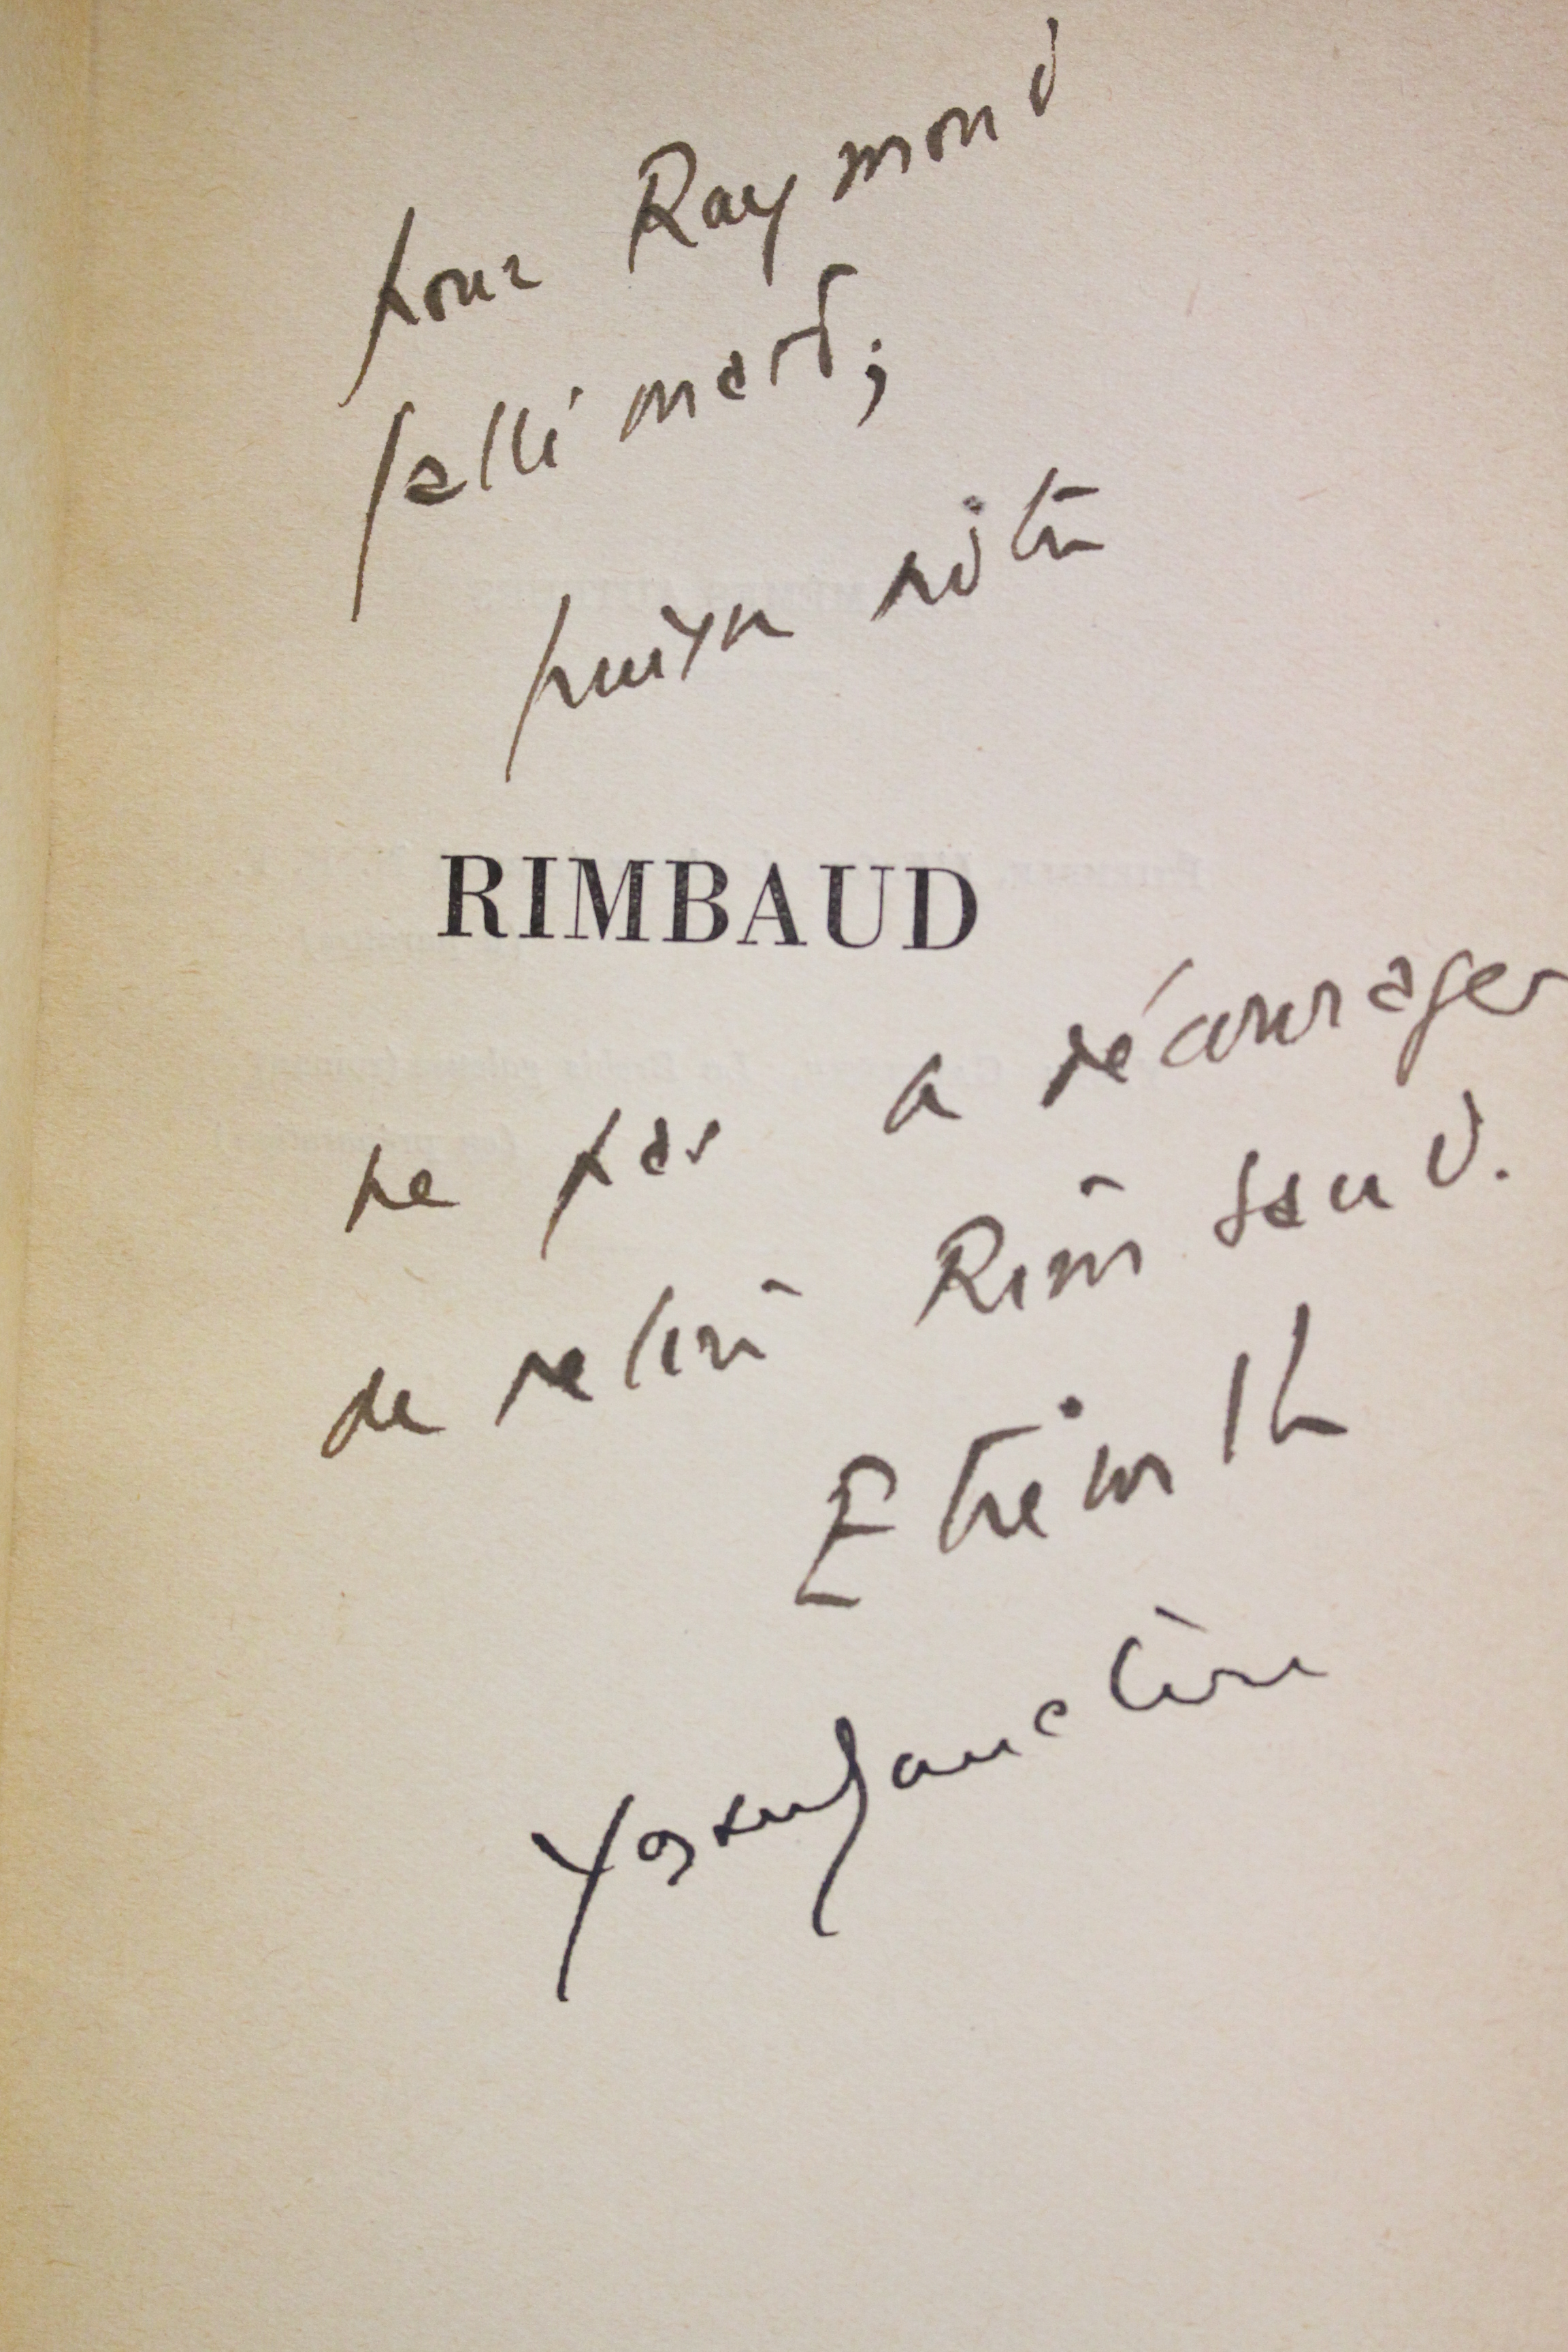 pour Raymond
Gallimard,
puisse notre
RIMBAUD
ne pas le décourager
de relire Rimbaud.
Etiemble
Yassu Gauclère